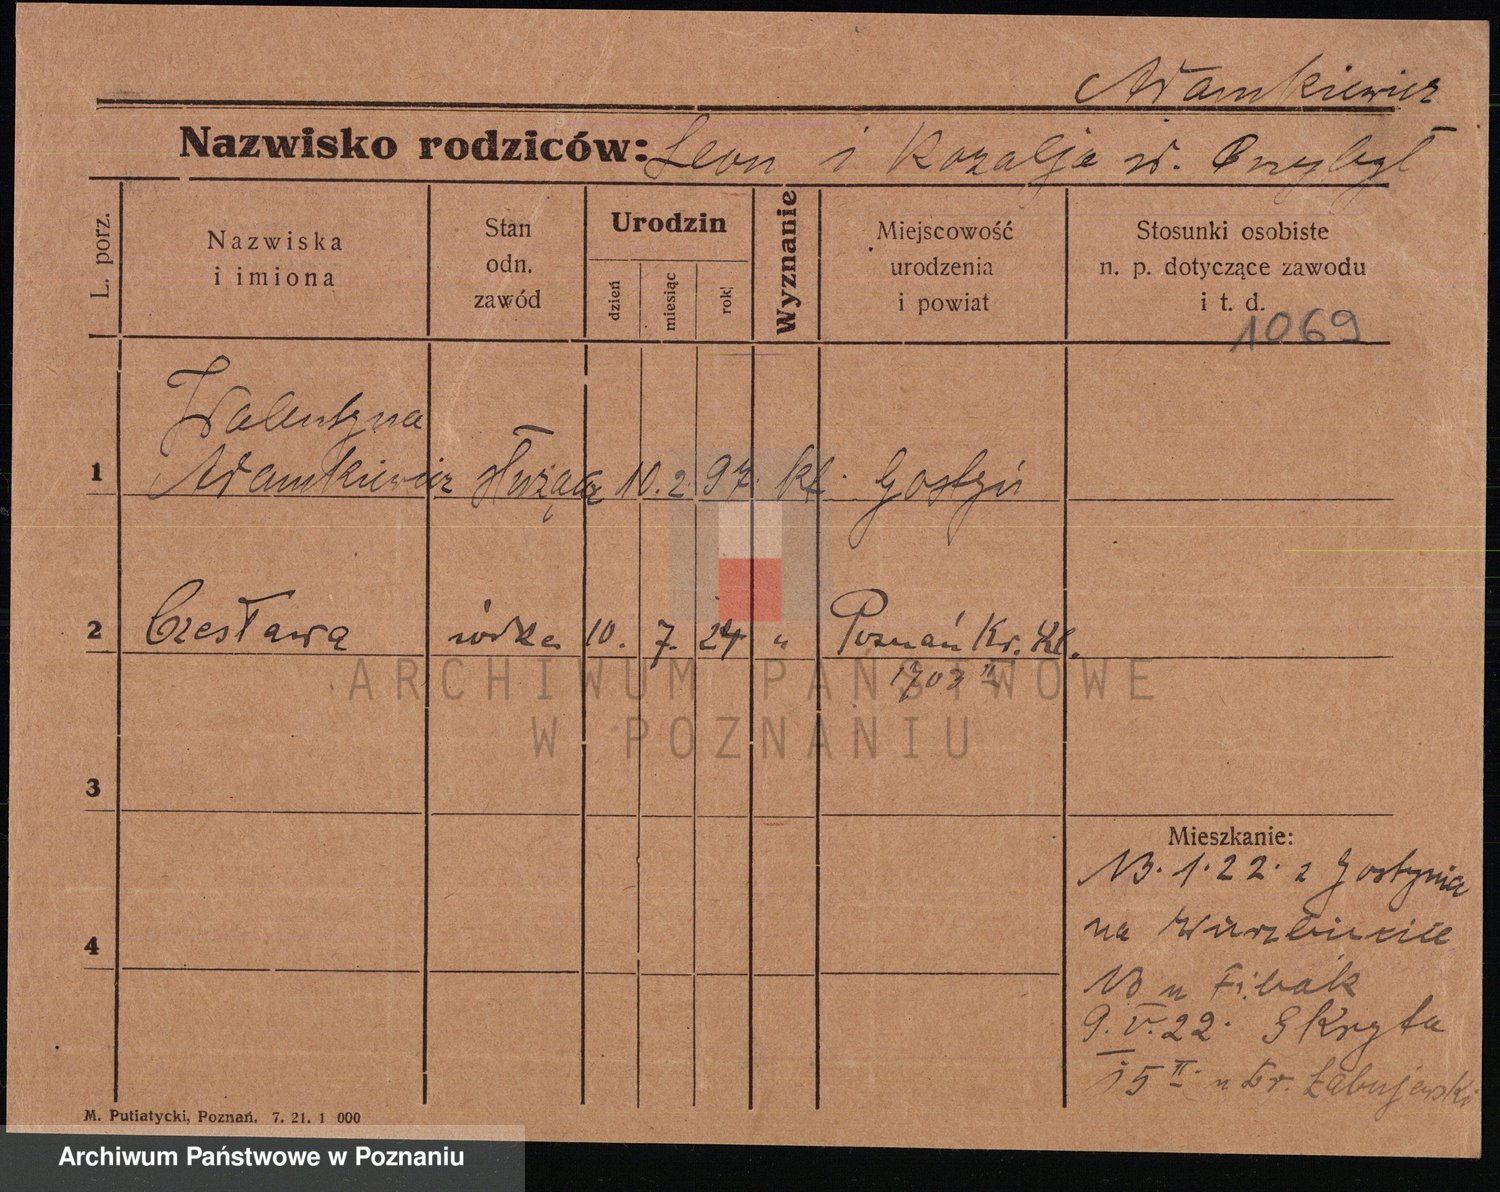 Adamkiewicz
Nazwisko rodziców: Leon i Rozalja
L. porz.
Nazwiska
i imiona
Stan
odn.
zawód
Urodzin
dzień
miesiąc
rok
Wyznanie
Miejscowość
urodzenia
i powiat
Stosunki osobiste
n. p. dotyczące zawodu
i t. d.
1069
Walentyna
1 Adamkiewicz służąca 10. 2. 97. kt. Gostyń
2 Czesława córka 10. 7. 24 " Poznań Kr. Kt.
1703 II
ARCHIWUM PAŃSTWOWE
W POZNANIU
3
Mieszkanie:
13. 1. 22. z Gostynia
na
4
13 u Fibak
9. V. 22. Skryta
15 II u Fr. Łabujewski
M. Putiatycki, Poznań. 7. 21. 1 000
Archiwum Państwowe w Poznaniu